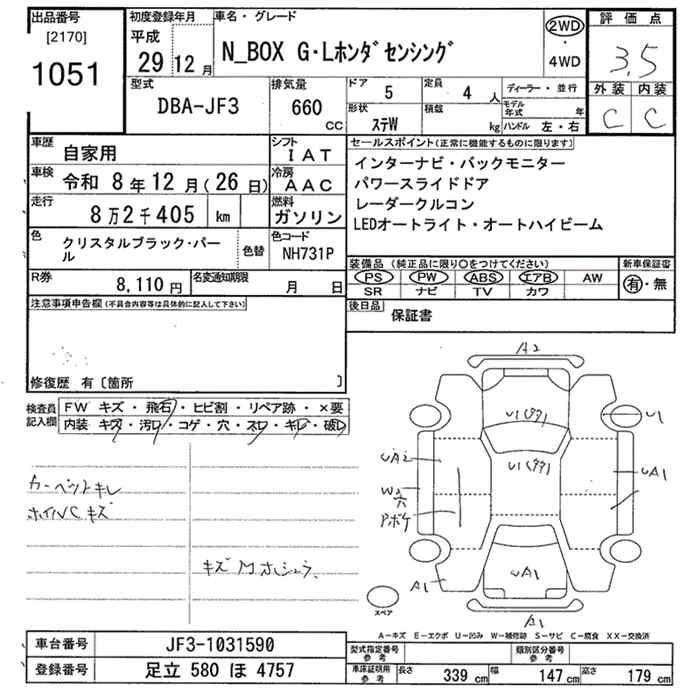 出品番号
[2170]
1051
初度登録年月
平成
29 12 月
車名・グレード
N_BOX G・Lホンダセンシング
2WD
・
4WD
評価点
3.5
外装 内装
C C
型式
DBA-JF3
排気量
660
CC
ドア
5
定員
4 人
形状
ステW
積載
kg
ディーラー・並行
モデル年式 年
ハンドル 左・右
車歴
自家用
シフト
I A T
車検
令和 8年 12月 ( 26日 )
冷房
A A C
走行
8万2千405 km
燃料
ガソリン
色
クリスタルブラック・パール
色替
色コード
NH731P
R券
8,110 円
名変通知期限
月 日
セールスポイント(正常に機能するものに限ります)
インターナビ・バックモニター
パワースライドドア
レーダークルコン
LEDオートライト・オートハイビーム
装備品 (純正品に限り○をつけてください)
PS PW ABS エアB AW
SR ナビ TV カワ
新車保証書
有・無
後日品
保証書
注意事項申告欄(不具合内容等は具体的に記入して下さい)
修復歴 有〔箇所 〕
検査員記入欄
FW キズ・飛石・ヒビ割・リペア跡・×要
内装 キズ・汚レ・コゲ・穴・スレ・キレ・破レ
カーペットキレ
ホイルCキズ
A2
U1
UA2
UA1
アボケ
A1
UA1
A1
スペア
A-キズ E-エクボ U-凹み W-補修跡 S-サビ C-腐食 XX-交換済
車台番号
JF3-1031590
登録番号
足立 580 ほ 4757
型式指定番号
参考
類別区分番号
参考
車庫証明用
参考
長さ
339 cm
幅
147 cm
高さ
179 cm